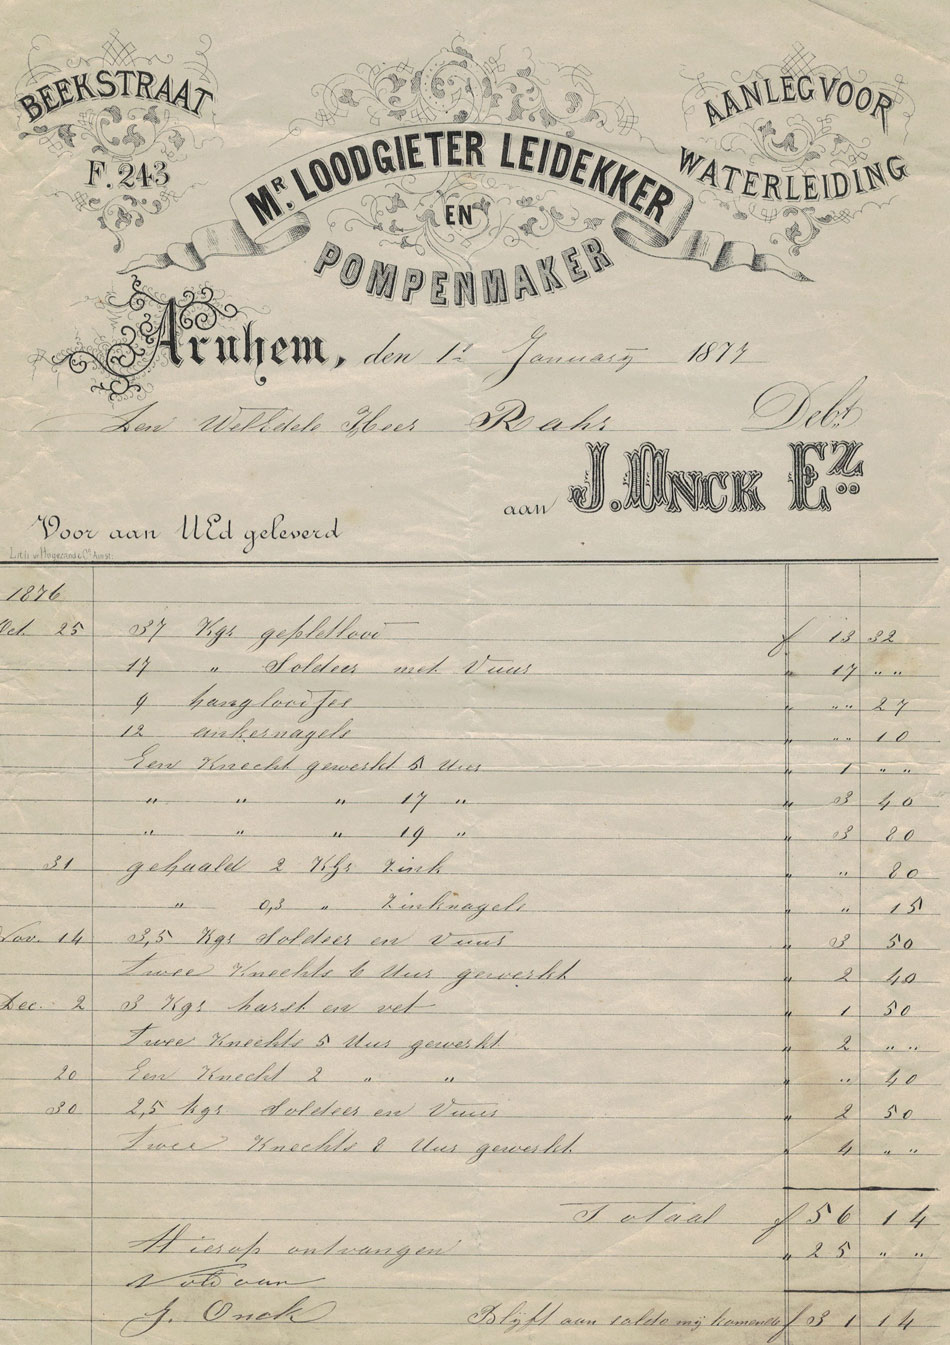 BEEKSTRAAT
F. 243
Mr. LOODGIETER LEIDEKKER
EN
POMPENMAKER
AANLEG VOOR
WATERLEIDING
Arnhem, den 1e January 1877
Den WelEdele Heer Rahr Debt.
aan J. ONCK Ez.
Voor aan UEd geleverd
1876
Oct. 25 37 Kgr gepletlood f 13 32
17 " Soldeer met Vuur " 17 " "
9 hangloodjes " " " 27
12 ankernagels " " " 10
Een Knecht gewerkt 5 Uur " 1 " "
" " " 17 " " 3 40
" " " 19 " " 3 80
31 gehaald 2 Kgr Zink " " 80
" 0,3 " Zinknagels " " 15
Nov. 14 3,5 Kgr Soldeer en Vuur " 3 50
Twee Knechts 6 Uur gewerkt " 2 40
Dec. 2 3 Kgr harst en vet " 1 50
Twee Knechts 5 Uur gewerkt " 2 " "
20 Een Knecht 2 " " " " 40
30 2,5 kgr Soldeer en Vuur " 2 50
Twee Knechts 8 Uur gewerkt " 4 " "
Totaal f 56 14
Hierop ontvangen " 25 " "
Voldaan
J. Onck Blijft aan saldo mij komende f 31 14